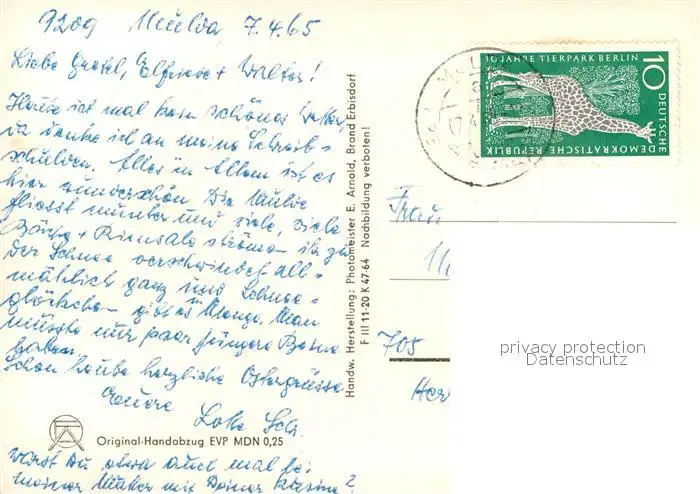 9209 Mulda, 7.4.65
Liebe Gretel, Elfriede + Walter!
Heute ist mal kein schönes Wetter,
da denke ich an meine Schreib-
schulden. Alles in Allem ist es
hier wunderschön. Die Mulde
fliesst munter und viele, viele
Bäche + Rinnsale strömen ihr zu
Der Schnee verschwindet all-
mählich ganz und Schnee-
glöckchen gibt es in Menge. Man
müsste nur paar jüngere Beine
haben.
Schon heute herzliche Ostergrüsse
Eure
Lotte Schr.
Warst Du etwa auch mal bei
meiner Mutter mit Deiner Kusine?
Original-Handabzug EVP MDN 0,25
Handw. Herstellung: Photomeister E. Arnold, Brand Erbisdorf
F III 11-20 K 47/64 Nachbildung verboten!
10 JAHRE TIERPARK BERLIN
10
DEUTSCHE
DEMOKRATISCHE REPUBLIK
Frau
705
privacy protection
Datenschutz